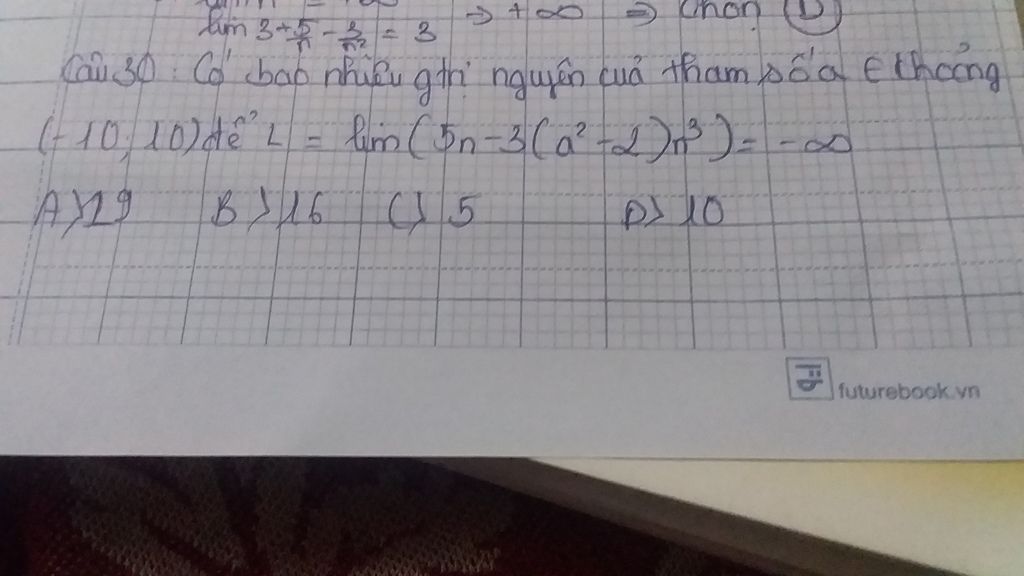 lim 3 + 5/n - 3/n² = 3 ⇒ + ∞ ⇒ chọn D
Câu 30: Có bao nhiêu gtrị nguyên của tham số a ∈ khoảng
(-10; 10) để L = lim(5n - 3(a² - 2)n³) = -∞
A> 19 B> 16 C> 5 D> 10
futurebook.vn